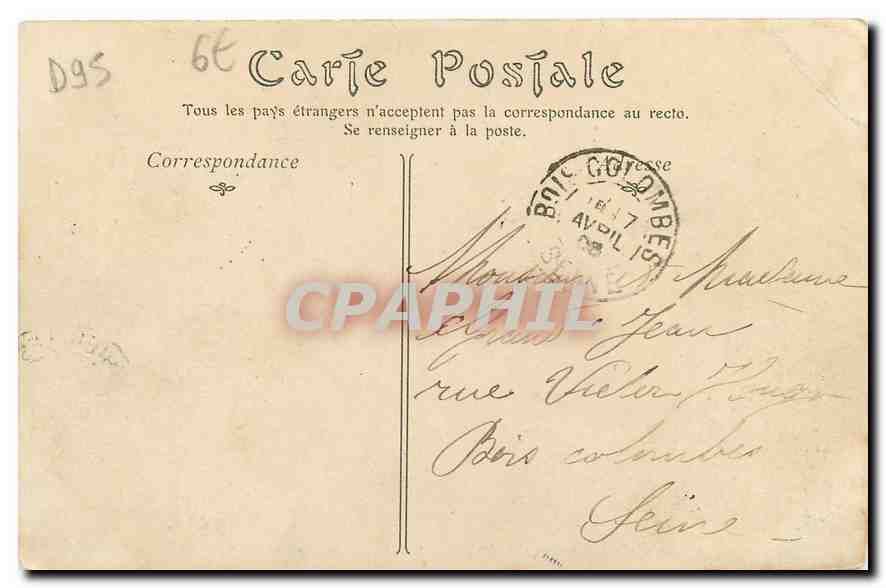 D95
6€
Carte Postale
Tous les pays étrangers n'acceptent pas la correspondance au recto.
Se renseigner à la poste.
Correspondance
Adresse
BOIS-COLOMBES
17
AVRIL
08
SEINE
CPAPHIL
Monsieur et Madame
Jean
rue Victor Hugo
Bois colombes
Seine